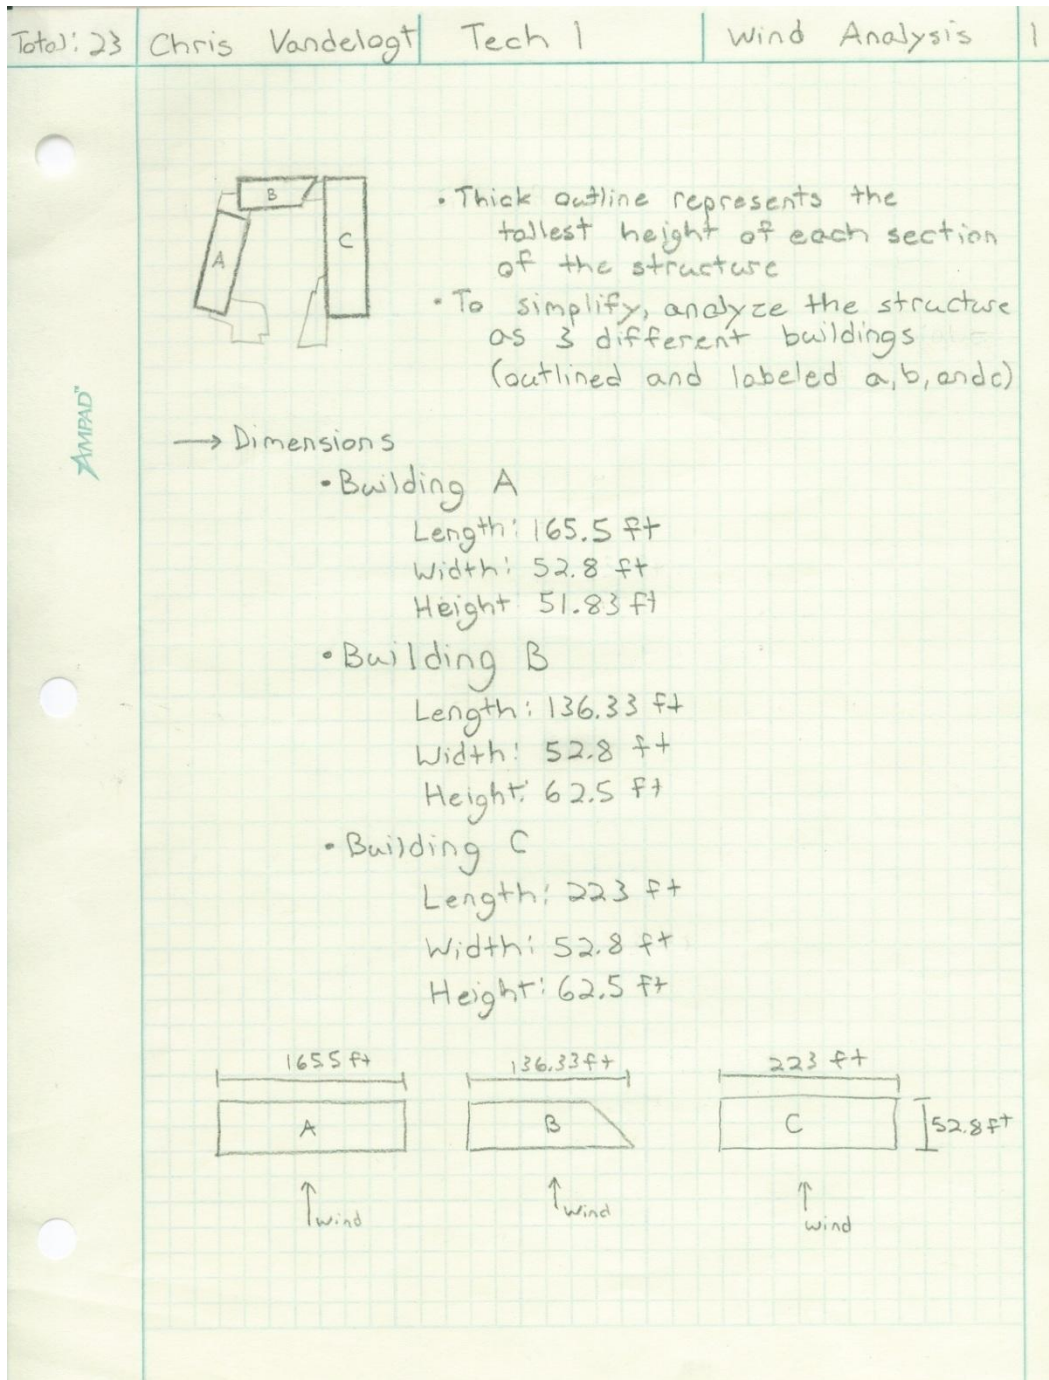 Total: 23 Chris Vandelogt Tech 1 Wind Analysis 1
B
A
C
• Thick outline represents the
tallest height of each section
of the structure
• To simplify, analyze the structure
as 3 different buildings
(outlined and labeled a, b, and c)
AMPAD™
→ Dimensions
• Building A
Length: 165.5 ft
Width: 52.8 ft
Height 51.83 ft
• Building B
Length: 136.33 ft
Width: 52.8 ft
Height: 62.5 ft
• Building C
Length: 223 ft
Width: 52.8 ft
Height: 62.5 ft
165.5 ft 136.33 ft 223 ft
A B C 52.8 ft
wind wind wind